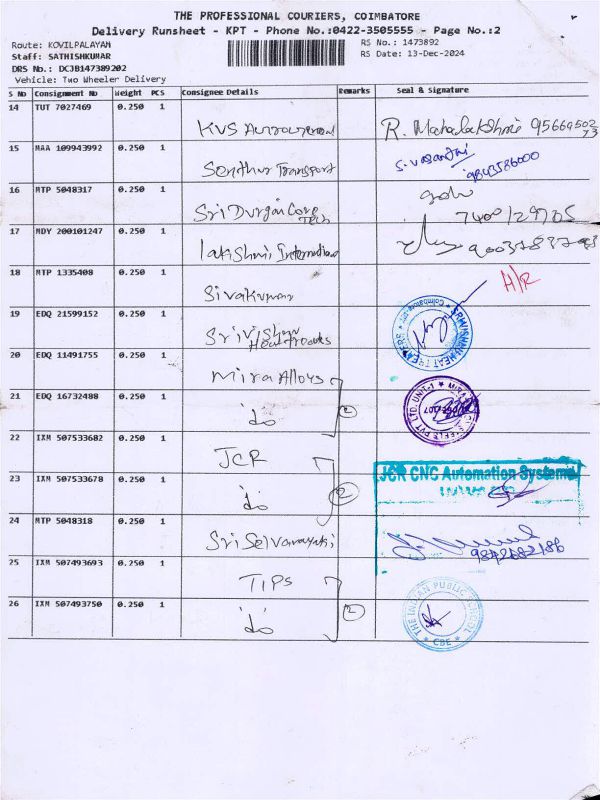 THE PROFESSIONAL COURIERS, COIMBATORE
Delivery Runsheet - KPT - Phone No.:0422-3505555 - Page No.:2
Route: KOVILPALAYAM
RS No.: 1473892
Staff: SATHISHKUMAR
RS Date: 13-Dec-2024
DRS No.: DCJB147389202
Vehicle: Two Wheeler Delivery
S No Consignment No Weight PCS Consignee Details Remarks Seal & Signature
14 TUT 7027469 0.250 1
KVS R. Mahalakshmi
15 MAA 109943992 0.250 1
Senthur Transport S. Vasanthi 9843586000
16 MTP 5048317 0.250 1
Sri Durgai Core Tech
17 MDY 200101247 0.250 1
Lakshmi International
18 MTP 1335408 0.250 1
Sivakumar H/R
19 EDQ 21599152 0.250 1
Sri Vishnu Heat Treats
20 EDQ 11491755 0.250 1
Mira Alloys
21 EDQ 16732488 0.250 1
do 2
22 IXM 507533682 0.250 1
JCR
23 IXM 507533678 0.250 1
do 2
JCR CNC Automation Systems
24 MTP 5048318 0.250 1
Sri Selvanayaki
25 IXM 507493693 0.250 1
TIPS
26 IXM 507493750 0.250 1
do 2
THE INDIAN PUBLIC SCHOOL
CBE